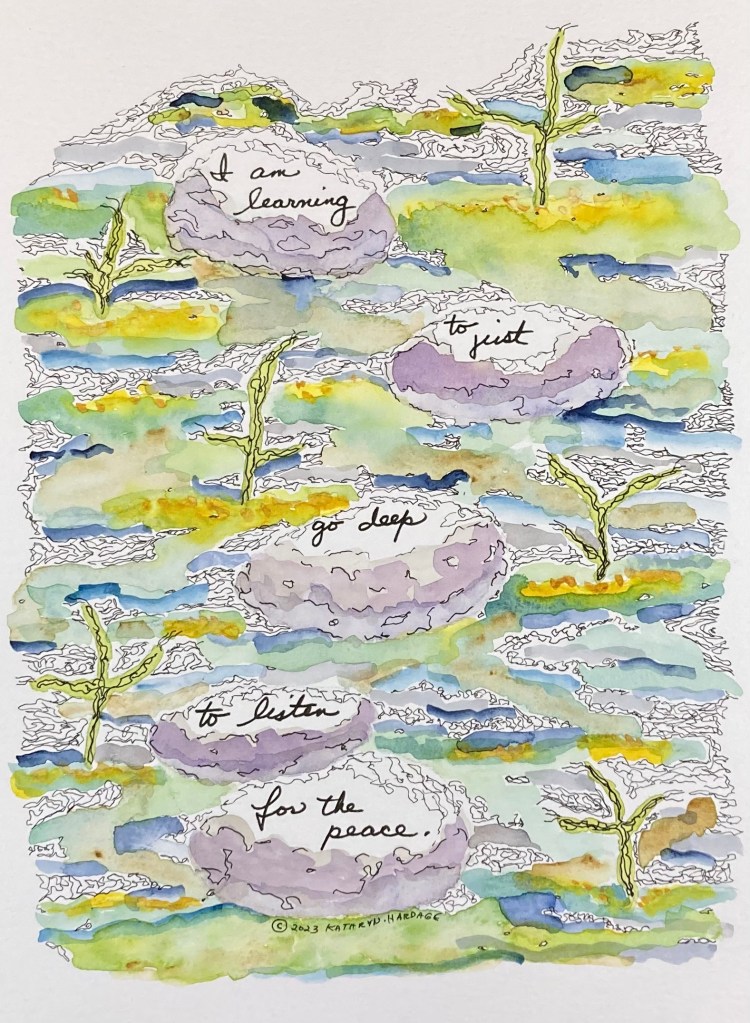 I am
learning
to just
go deep
to listen
for the
peace.
© 2023 KATHRYN-HARDAGE